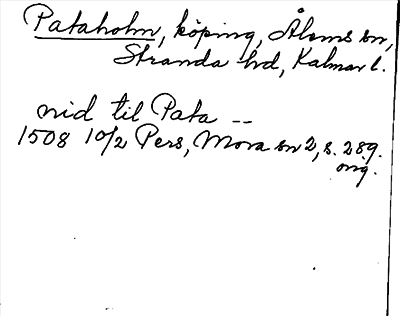 Pataholm, köping, Ålems sn,
Stranda hd, Kalmar l.
nid til Pata --
1508 10/2 Pers, Mora sn 2, s. 289.
orig.